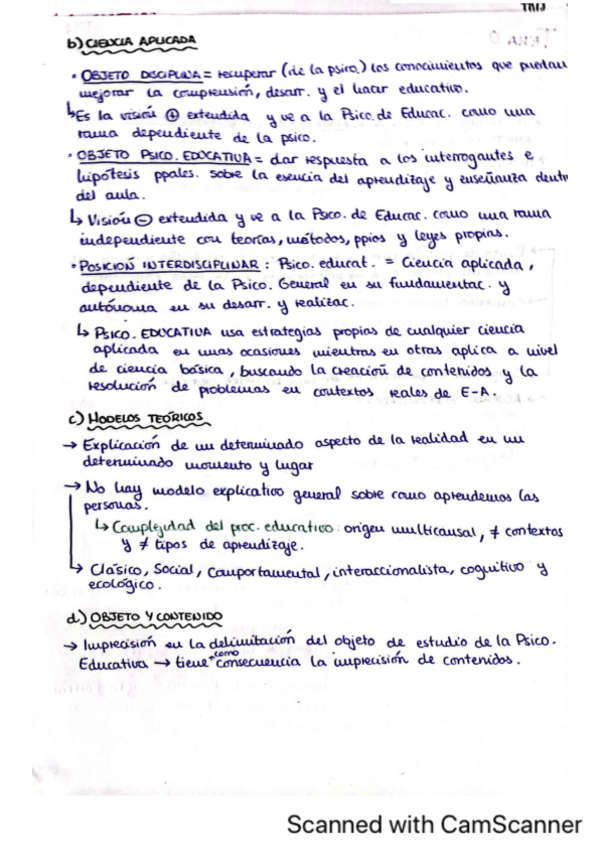 b) CIENCIA APLICADA
· OBJETO DISCIPLINA = recuperar (de la psico.) los conocimientos que puedan
mejorar la comprensión, desarr. y el hacer educativo.
↳ Es la visión ⊕ extendida y ve a la Psico. de Educac. como una
rama dependiente de la psico.
· OBJETO PSICO. EDUCATIVA = dar respuesta a los interrogantes e
hipótesis ppales. sobre la esencia del aprendizaje y enseñanza dentr
del aula.
↳ Visión ⊖ extendida y ve a la Psico. de Educac. como una rama
independiente con teorías, métodos, ppios y leyes propias.
· POSICIÓN INTERDISCIPLINAR : Psico. educat. = Ciencia aplicada,
dependiente de la Psico. General en su fundamentac. y
autónoma en su desarr. y realizac.
↳ PSICO. EDUCATIVA usa estrategias propias de cualquier ciencia
aplicada en unas ocasiones mientras en otras aplica a nivel
de ciencia básica, buscando la creación de contenidos y la
resolución de problemas en contextos reales de E-A.
c) MODELOS TEÓRICOS
→ Explicación de un determinado aspecto de la realidad en un
determinado momento y lugar
→ No hay modelo explicativo general sobre como aprendemos las
personas.
↳ Complejidad del proc. educativo: origen multicausal, ≠ contextos
y ≠ tipos de aprendizaje.
↳ Clásico, Social, Comportamental, interaccionalista, cognitivo y
ecológico.
d) OBJETO Y CONTENIDO
→ Imprecisión en la delimitación del objeto de estudio de la Psico.
Educativa → tiene como consecuencia la imprecisión de contenidos.
Scanned with CamScanner